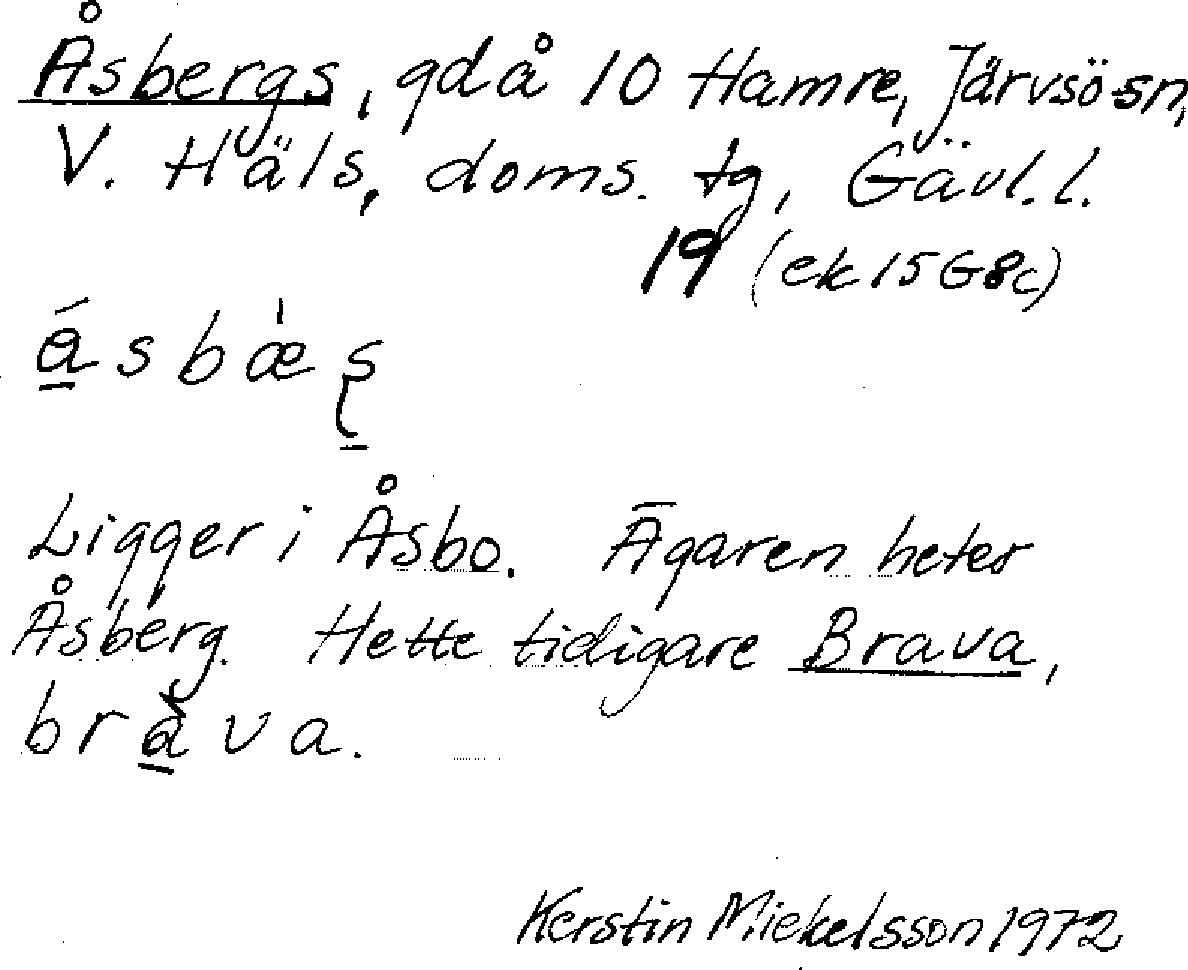 Åsbergs, gdå 10 Hamre, Järvsö sn,
V. Häls. doms. tg, Gävl. l.
19 (ek 15 G 8c)
Ligger i Åsbo. Ägaren heter
Åsberg. Hette tidigare Brava,
Kerstin Mickelsson 1972